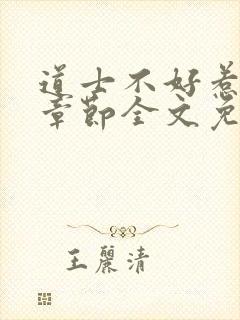 道士不好惹
章節全文免
王麗清